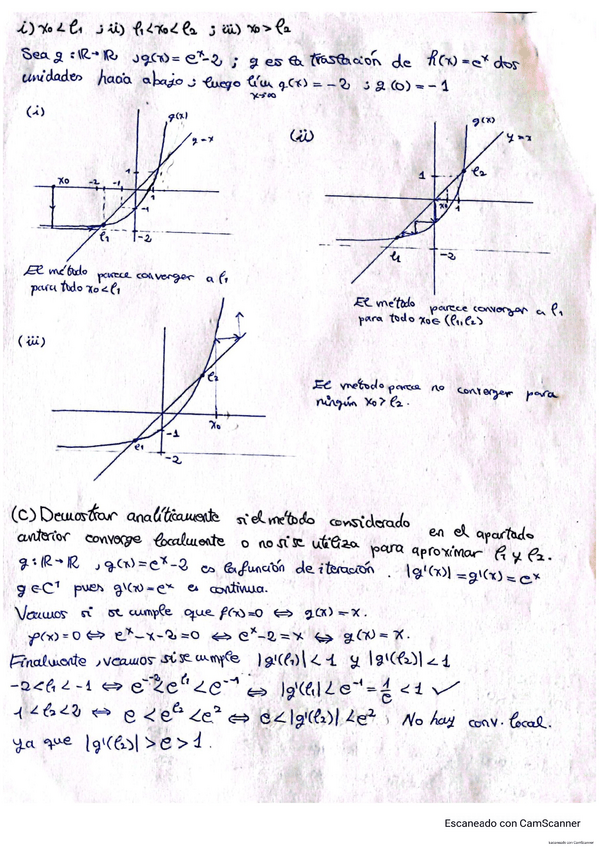 i) x₀ < l₁ ; ii) l₁ < x₀ < l₂ ; iii) x₀ > l₂
Sea g : ℝ → ℝ , g(x) = eˣ - 2 ; g es la traslación de h(x) = eˣ dos
unidades hacia abajo ; luego lím g(x) = -2 ; g(0) = -1
x→∞
(i)
g(x)
y = x
x₀
-2
-1
1
1
-1
l₁
-2
El método parece converger a l₁
para todo x₀ < l₁
(ii)
g(x)
y = x
1
l₂
x₀
1
l₁
-2
El método parece converger a l₁
para todo x₀ ∈ (l₁, l₂)
(iii)
l₂
x₀
-1
l₁
-2
El método parece no converger para
ningún x₀ > l₂.
(C) Demostrar analíticamente si el método considerado en el apartado
anterior converge localmente o no si se utiliza para aproximar l₁ y l₂.
g : ℝ → ℝ , g(x) = eˣ - 2 es la función de iteración . |g'(x)| = g'(x) = eˣ
g ∈ C¹ pues g'(x) = eˣ es continua.
Veamos si se cumple que f(x) = 0 ⇔ g(x) = x.
f(x) = 0 ⇔ eˣ - x - 2 = 0 ⇔ eˣ - 2 = x ⇔ g(x) = x.
Finalmente , veamos si se cumple |g'(l₁)| < 1 y |g'(l₂)| < 1
-2 < l₁ < -1 ⇔ e⁻² < e^l₁ < e⁻¹ ⇔ |g'(l₁)| < e⁻¹ = 1/e < 1 ✓
1 < l₂ < 2 ⇔ e < e^l₂ < e² ⇔ e < |g'(l₂)| < e² No hay conv. local.
ya que |g'(l₂)| > e > 1.
Escaneado con CamScanner
Escaneado con CamScanner